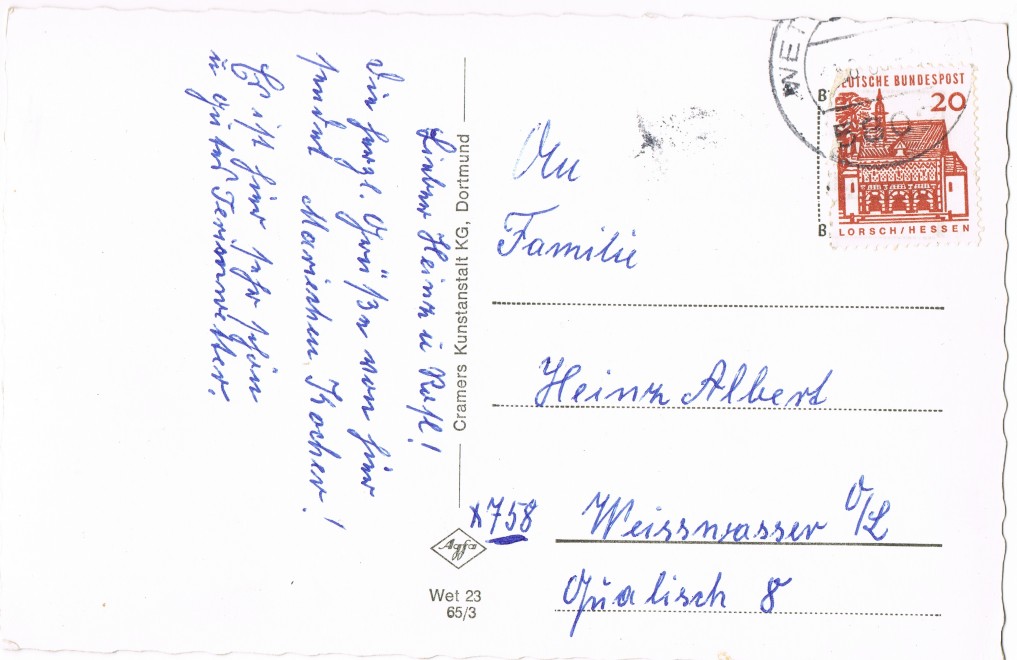 Lieber Heinz u Rosl!
Die herzl. Grüße von hier
sendet Mariechen Kocher!
Es ist hier sehr schön
u gutes Ferienwetter.
Cramers Kunstanstalt KG, Dortmund
Agfa
Wet 23
65/3
WET
DEUTSCHE BUNDESPOST
20
LORSCH/HESSEN
An
Familie
Heinz Albert
x758 Weisswasser O/L
Gualisch 8